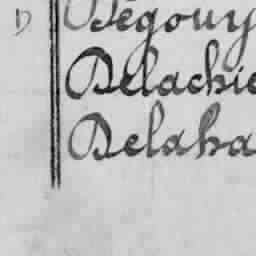 D Bégouy
Delachie
Delaha